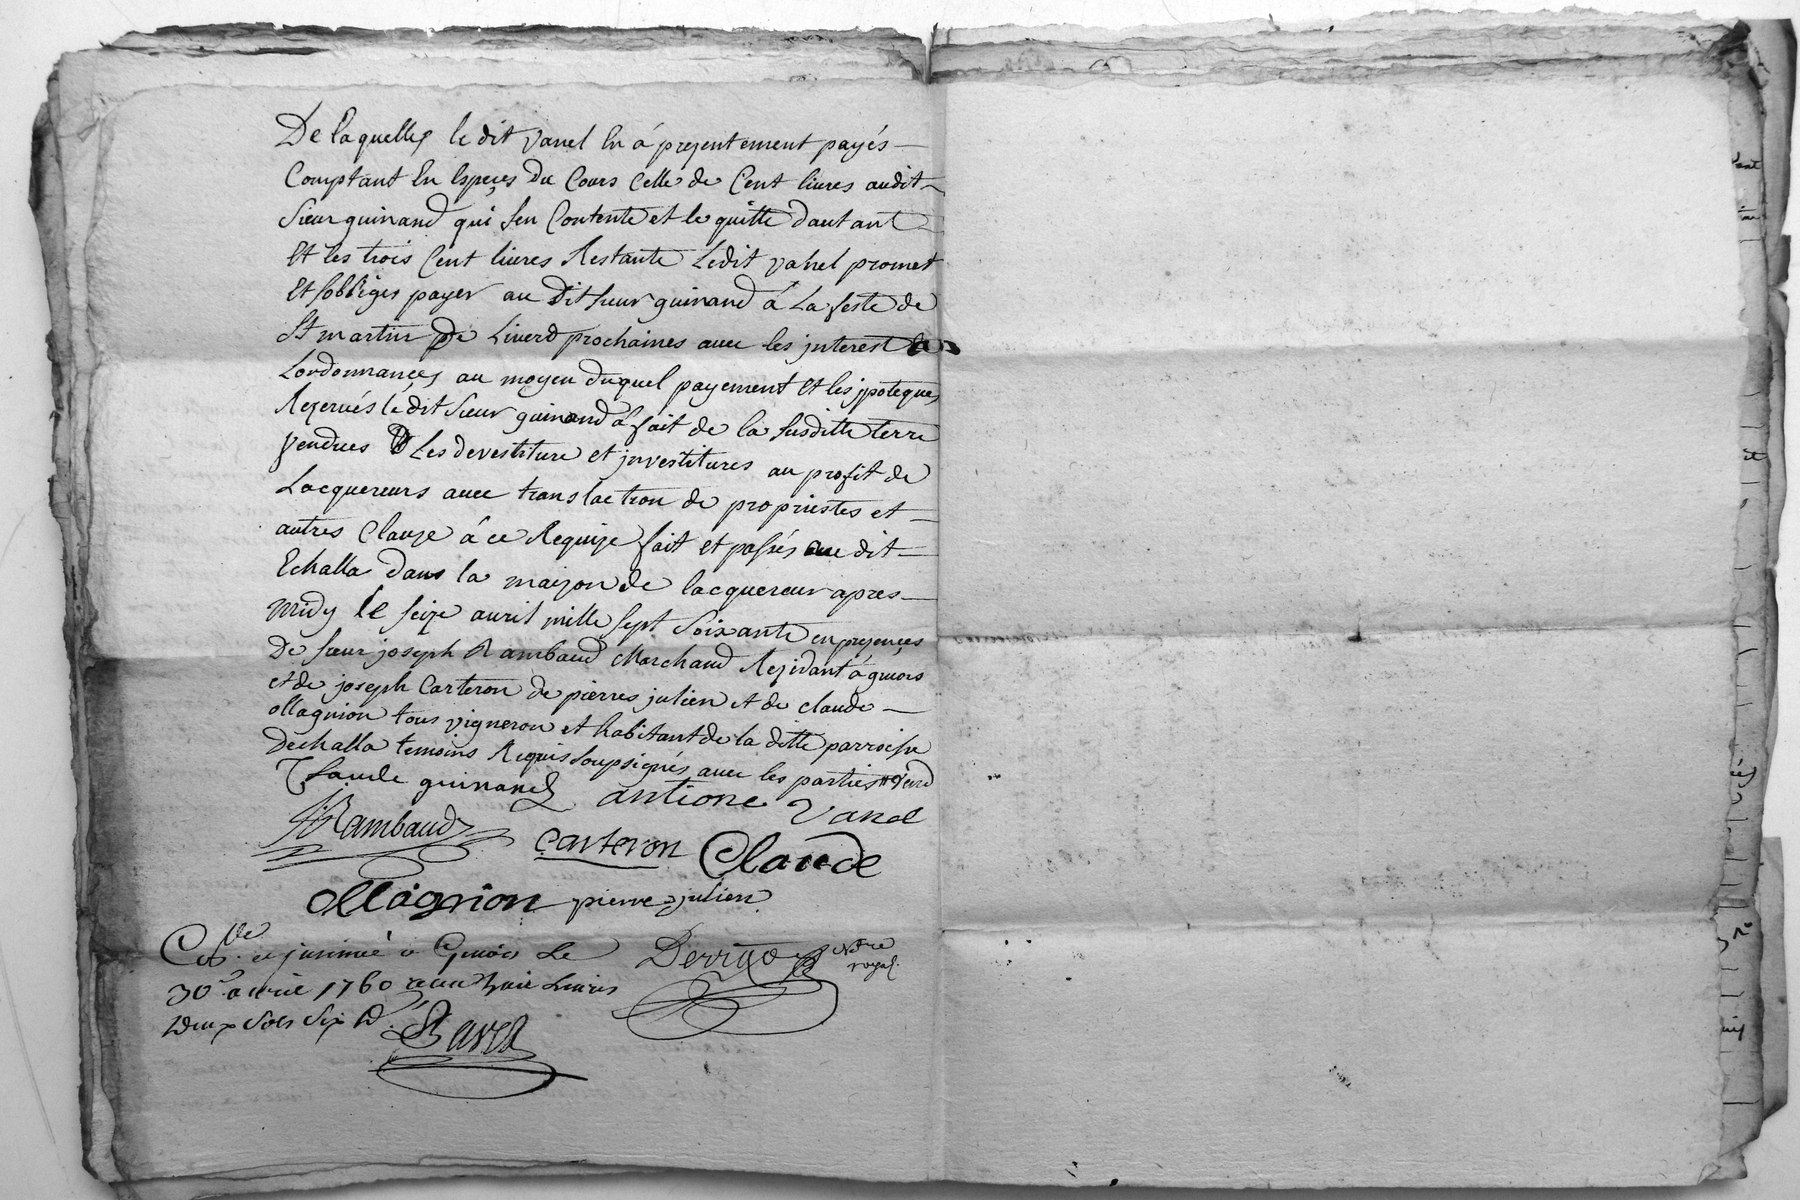 De laquelles le dit vanel En á presentement payés
Comptant En Especes Du Cours Celle de Cent livres audit
Sieur guinand qui sen Contente et le quitte dautant
Et les trois Cent livres Restante Ledit vanel promet
Et soblliges payer au Dit sieur guinand á La feste de
St martin De Liverd prochaines avec les jnterest
Lordonnances au moyen duquel payement Et les jpoteques
Rezervés lé dit Sieur guinand á fait de la susditte terre
Vendues Les devestiture et jnvestitures au profit de
Lacquereurs avec translaction de proprietes et
autres Clauze á ce Requize fait et passés au dit
Echalla dans la maizon de lacquereur apres
midy le seize avril mille sept soixante en presences
De sieur joseph Rambaud Marchand Rezidant á givors
et de joseph Carteron de pierres julien et de claude
Magnion tous vigneron et habitant de la ditte parroisse
Dechalla temoins Requis soussignés avec les parties
Claude guinand antione Vanel
Rambaud Carteron Claude
Magnion pierre julien
Clle et jnsinué a Givors Le
30e avril 1760 recu huit Livres
Deux Sols Six D
Notre
royal